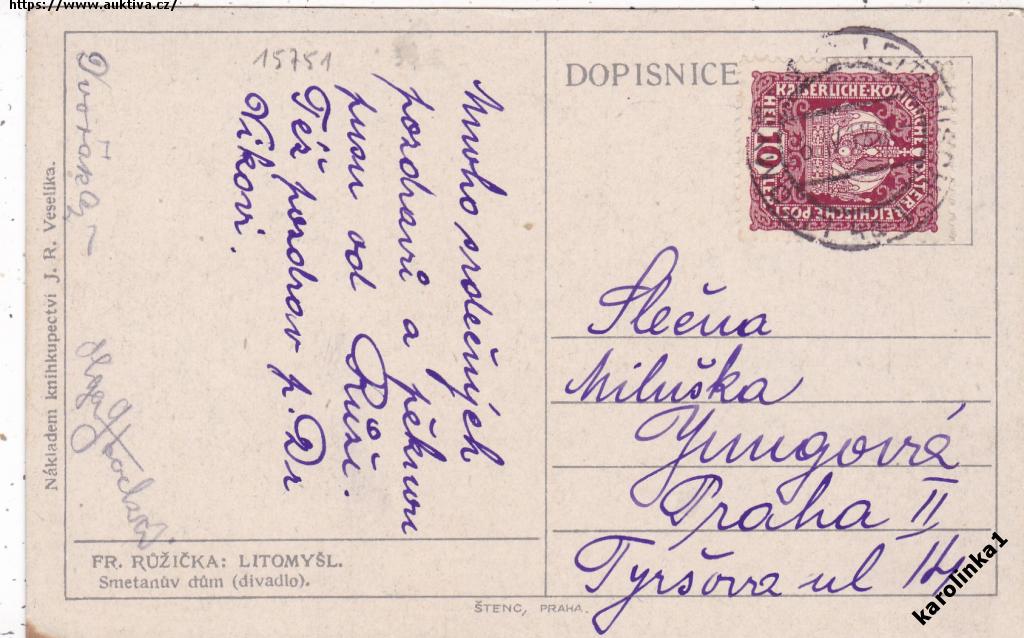 https://www.auktiva.cz/
15751
DOPISNICE
KAISERLICHE KÖNIGLICHE ÖSTERREICHISCHE POST
10
Mnoho srdečných
pozdravů a pěknou
pusu od Růži.
Též pozdrav p. Dr
Víkovi.
Dvořáka
Olga
Slečna
Miluška
Yungová
Praha II
Tyršova ul 14
Nákladem knihkupectví J. R. Veselíka.
FR. RŮŽIČKA: LITOMYŠL.
Smetanův dům (divadlo).
ŠTENC, PRAHA.
karolinka1